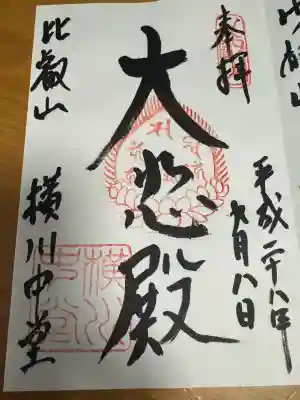 奉拝
平成二十八年
九月八日
大悲殿
比叡山
横川中堂
横川
中堂